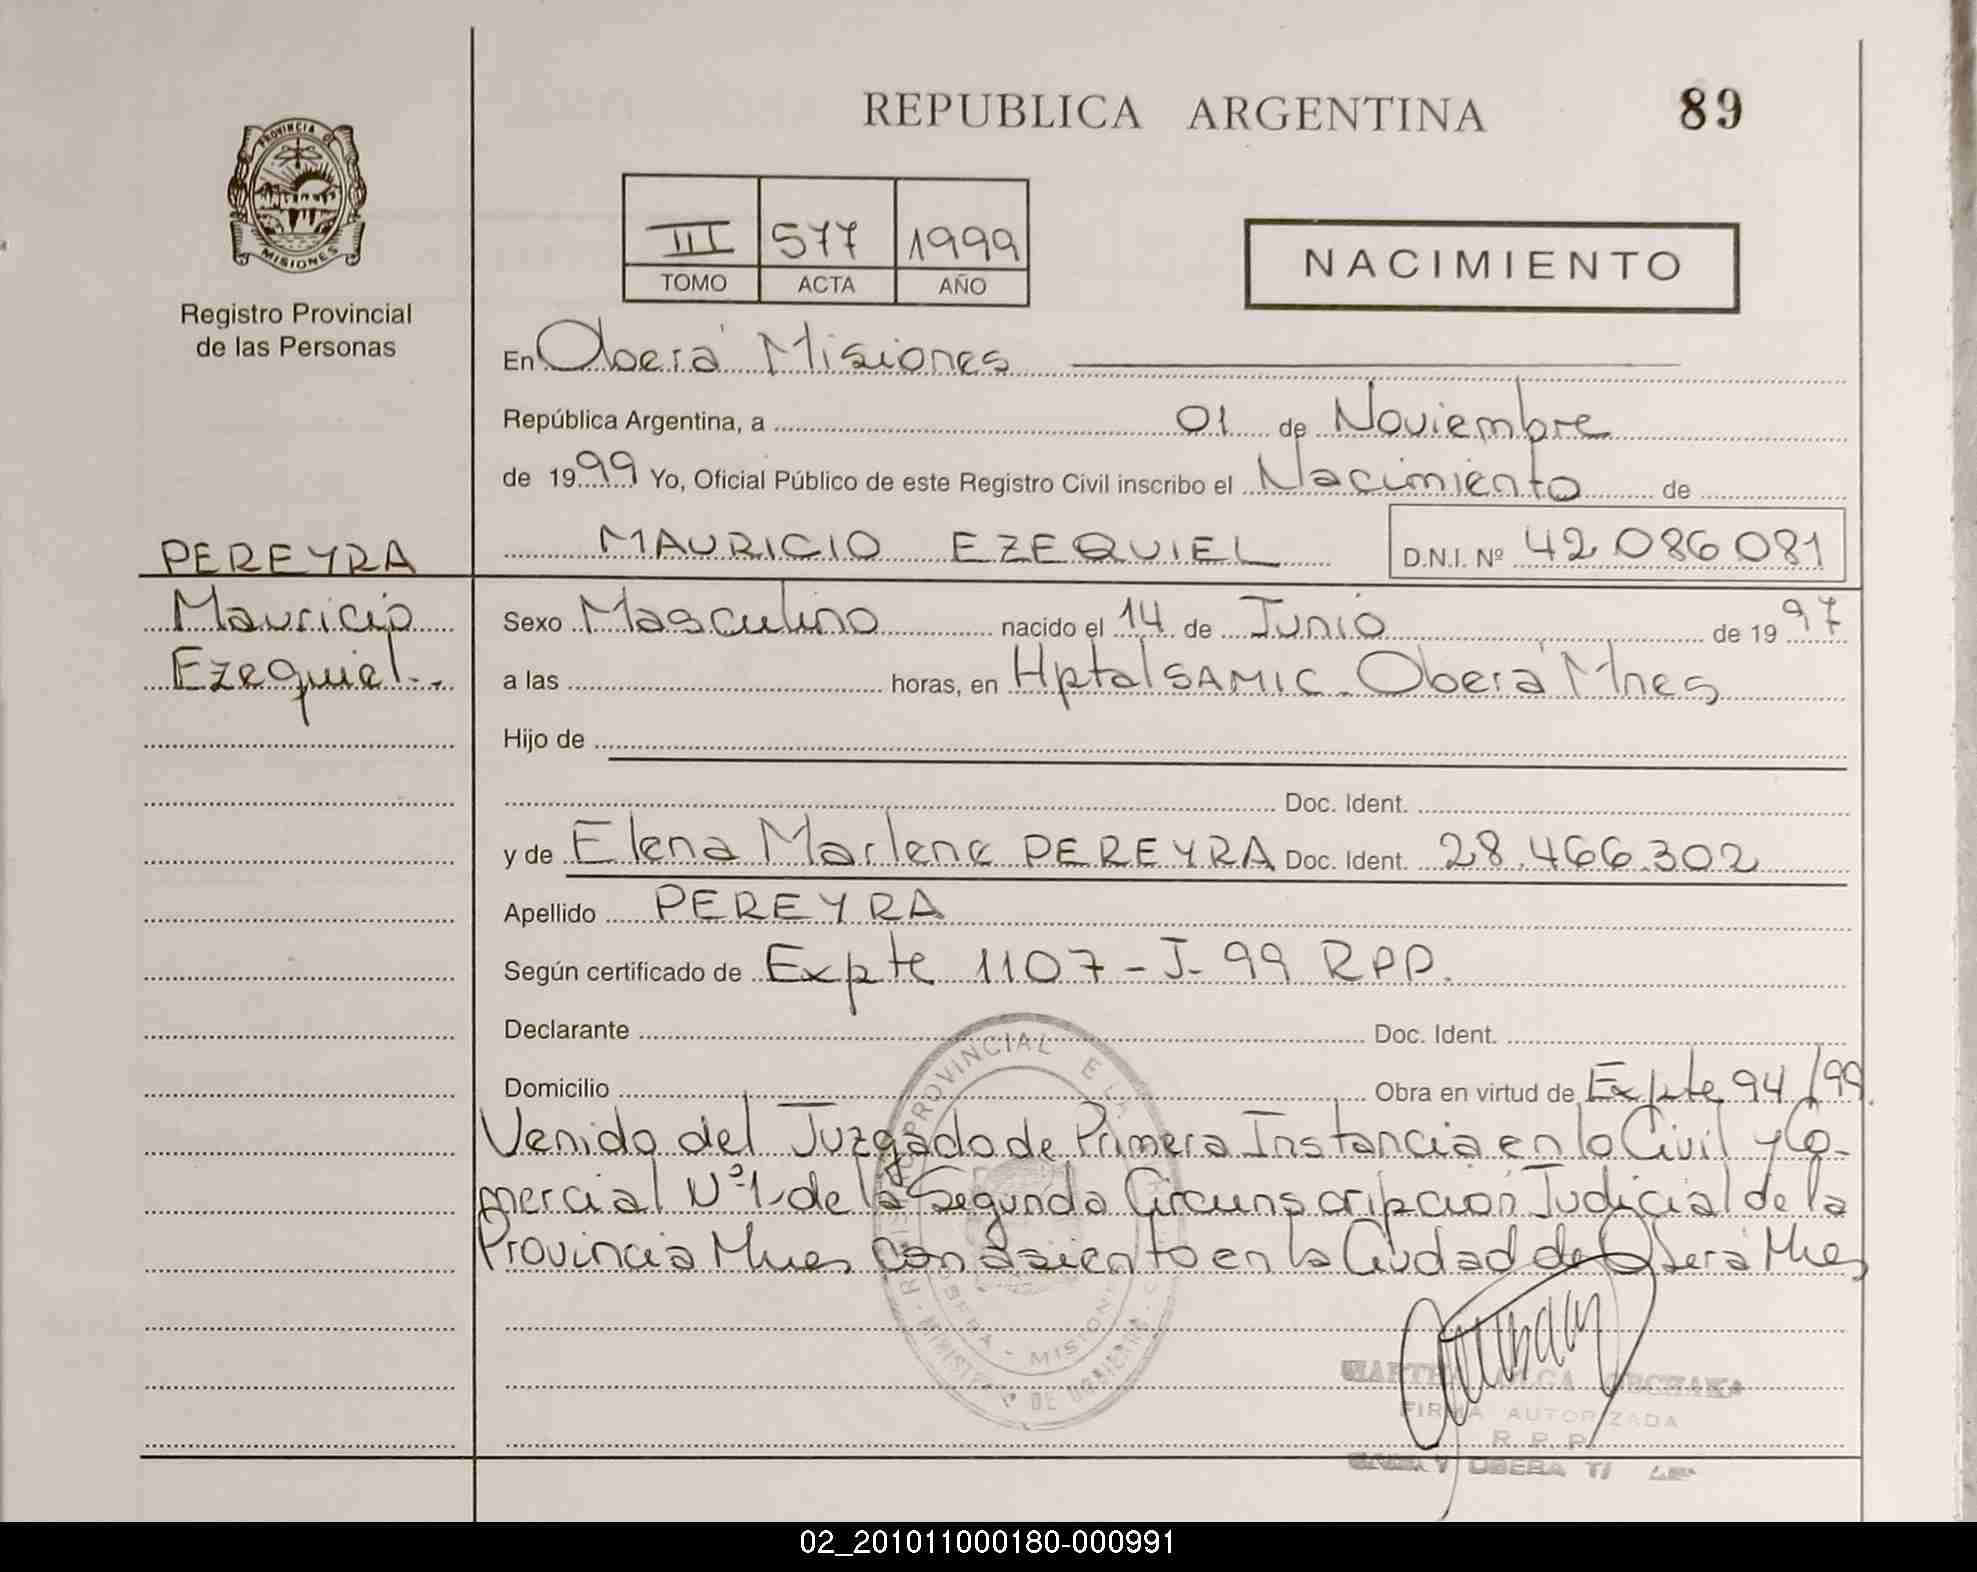 REPUBLICA ARGENTINA
89
PROVINCIA DE
MISIONES
Registro Provincial
de las Personas
III 577 1999
TOMO ACTA AÑO
NACIMIENTO
En Oberá Misiones
República Argentina, a 01 de Noviembre
de 1999 Yo, Oficial Público de este Registro Civil inscribo el Nacimiento de
MAURICIO EZEQUIEL D.N.I. Nº 42 086 081
PEREYRA
Mauricio
Ezequiel.-
Sexo Masculino nacido el 14 de Junio de 1997
a las horas, en Hptal SAMIC. Oberá Mnes
Hijo de
Doc. Ident.
y de Elena Marlene PEREYRA Doc. Ident. 28.466.302
Apellido PEREYRA
Según certificado de Expte 1107-J-99 RPP.
Declarante Doc. Ident.
Domicilio Obra en virtud de Expte 94/99.
Venido del Juzgado de Primera Instancia en lo Civil y Co-
mercial Nº1 de la Segunda Circunscripción Judicial de la
Provincia Mnes con asiento en la Ciudad de Oberá Mnes
PROVINCIAL E LA
MISION
FIRMA AUTORIZADA
R. P. P.
OBERA
02_201011000180-000991